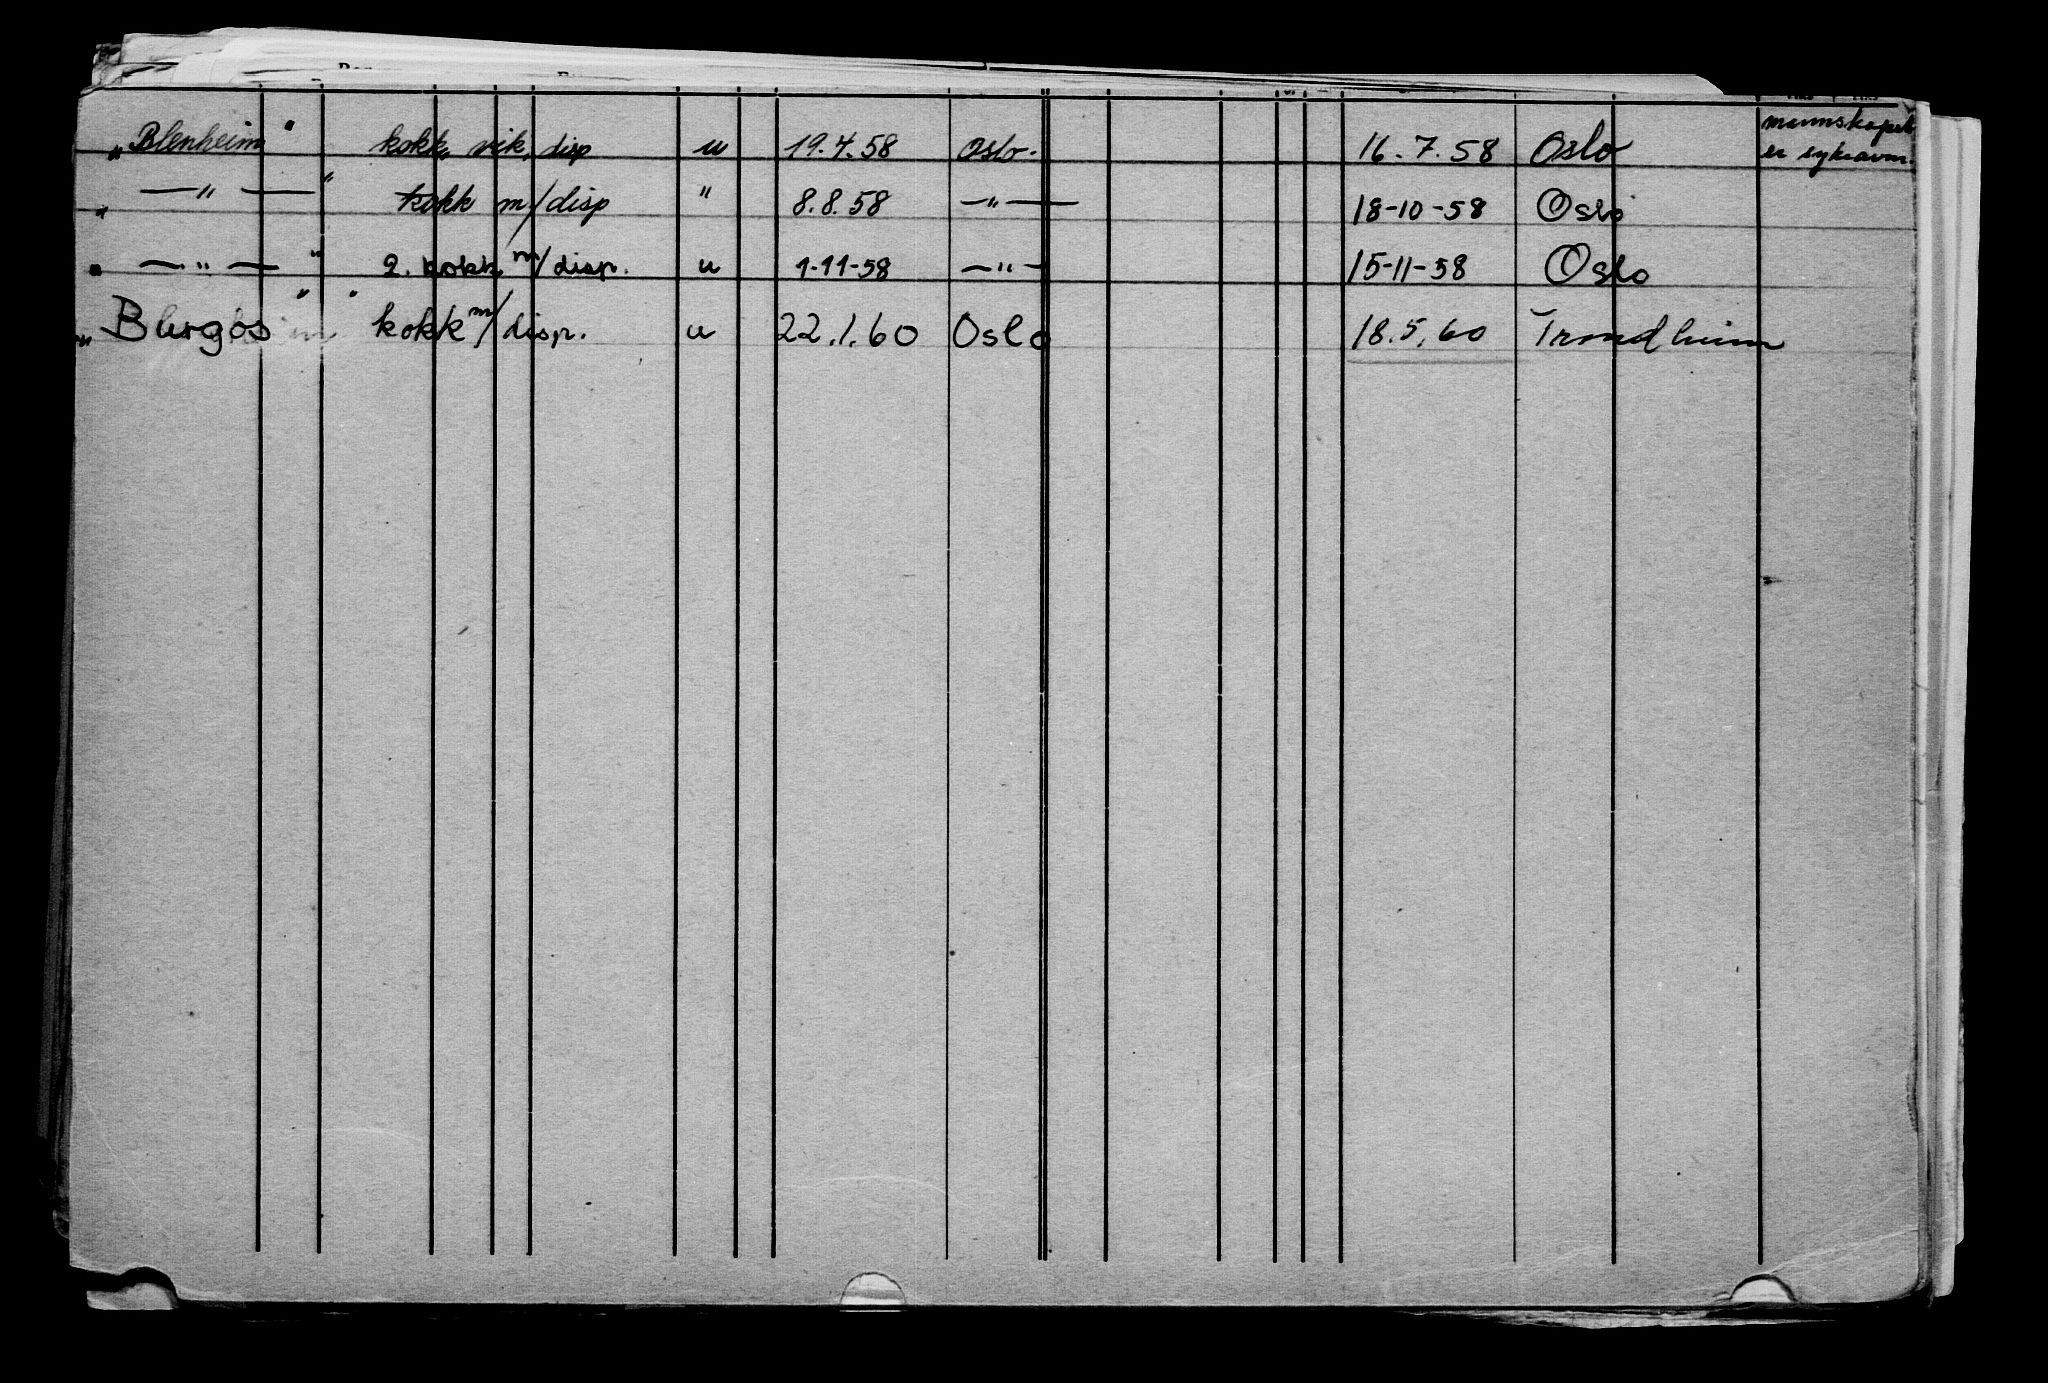 „Blenheim" kokk, vik, disp u 19.4.58 Oslo. 16.7.58 Oslo mannskapet er sykeavm.
„ — " — " kokk m/disp " 8.8.58 — " — 18-10-58 Oslo
„ — " — " 2. kokk m/disp. u 1-11-58 — " — 15-11-58 Oslo
„Burgos" kokk m/disp. u 22.1.60 Oslo 18.5.60 Trondheim